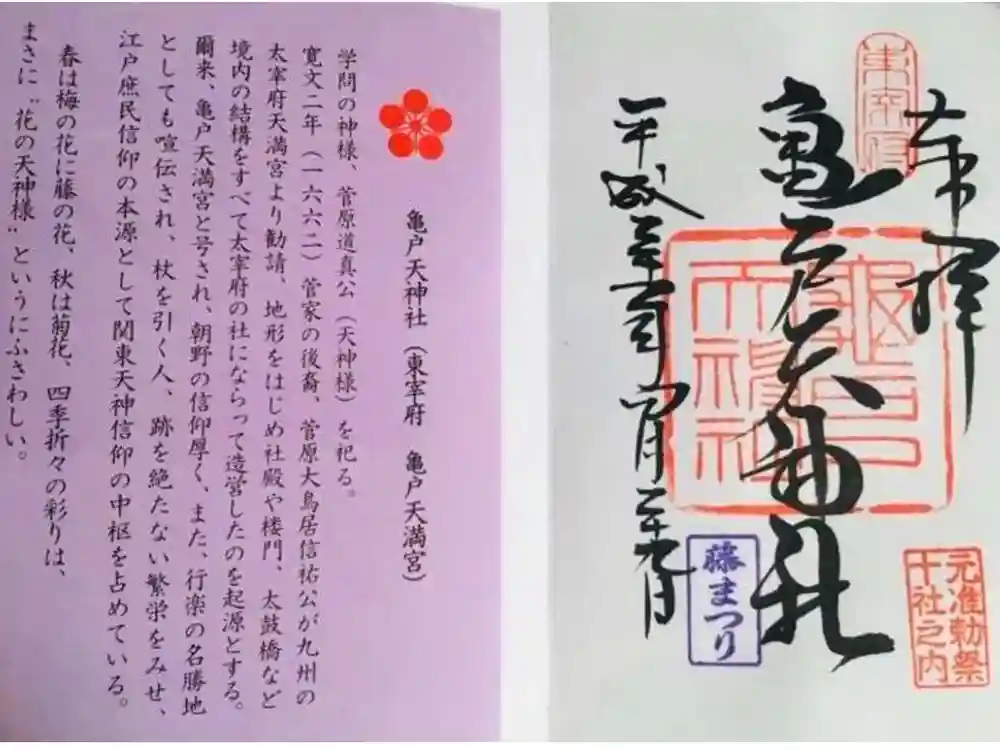 奉拝
東宰府
亀戸天神社
亀戸
天神社
元准勅祭
十社之内
藤まつり
平成
月二十九日
亀戸天神社（東宰府　亀戸天満宮）
学問の神様、菅原道真公（天神様）を祀る。
寛文二年（一六六二）菅家の後裔、菅原大鳥居信祐公が九州の
太宰府天満宮より勧請、地形をはじめ社殿や楼門、太鼓橋など
境内の結構をすべて太宰府の社にならって造営したのを起源とする。
爾来、亀戸天満宮と号され、朝野の信仰厚く、また、行楽の名勝地
としても喧伝され、杖を引く人、跡を絶たない繁栄をみせ、
江戸庶民信仰の本源として関東天神信仰の中枢を占めている。
春は梅の花に藤の花、秋は菊花、四季折々の彩りは、
まさに〝花の天神様〟というにふさわしい。